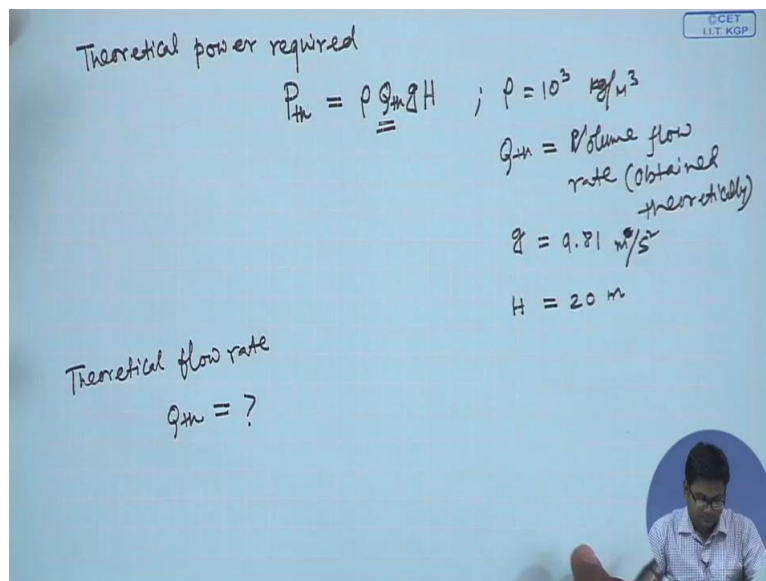 ©CET
I.I.T. KGP
Theoretical power required
Pth = ρ Qth g H ; ρ = 10³ kg/m³
Qth = Volume flow
rate (obtained
theoretically)
g = 9.81 m/s²
H = 20 m
Theoretical flow rate
Qth = ?